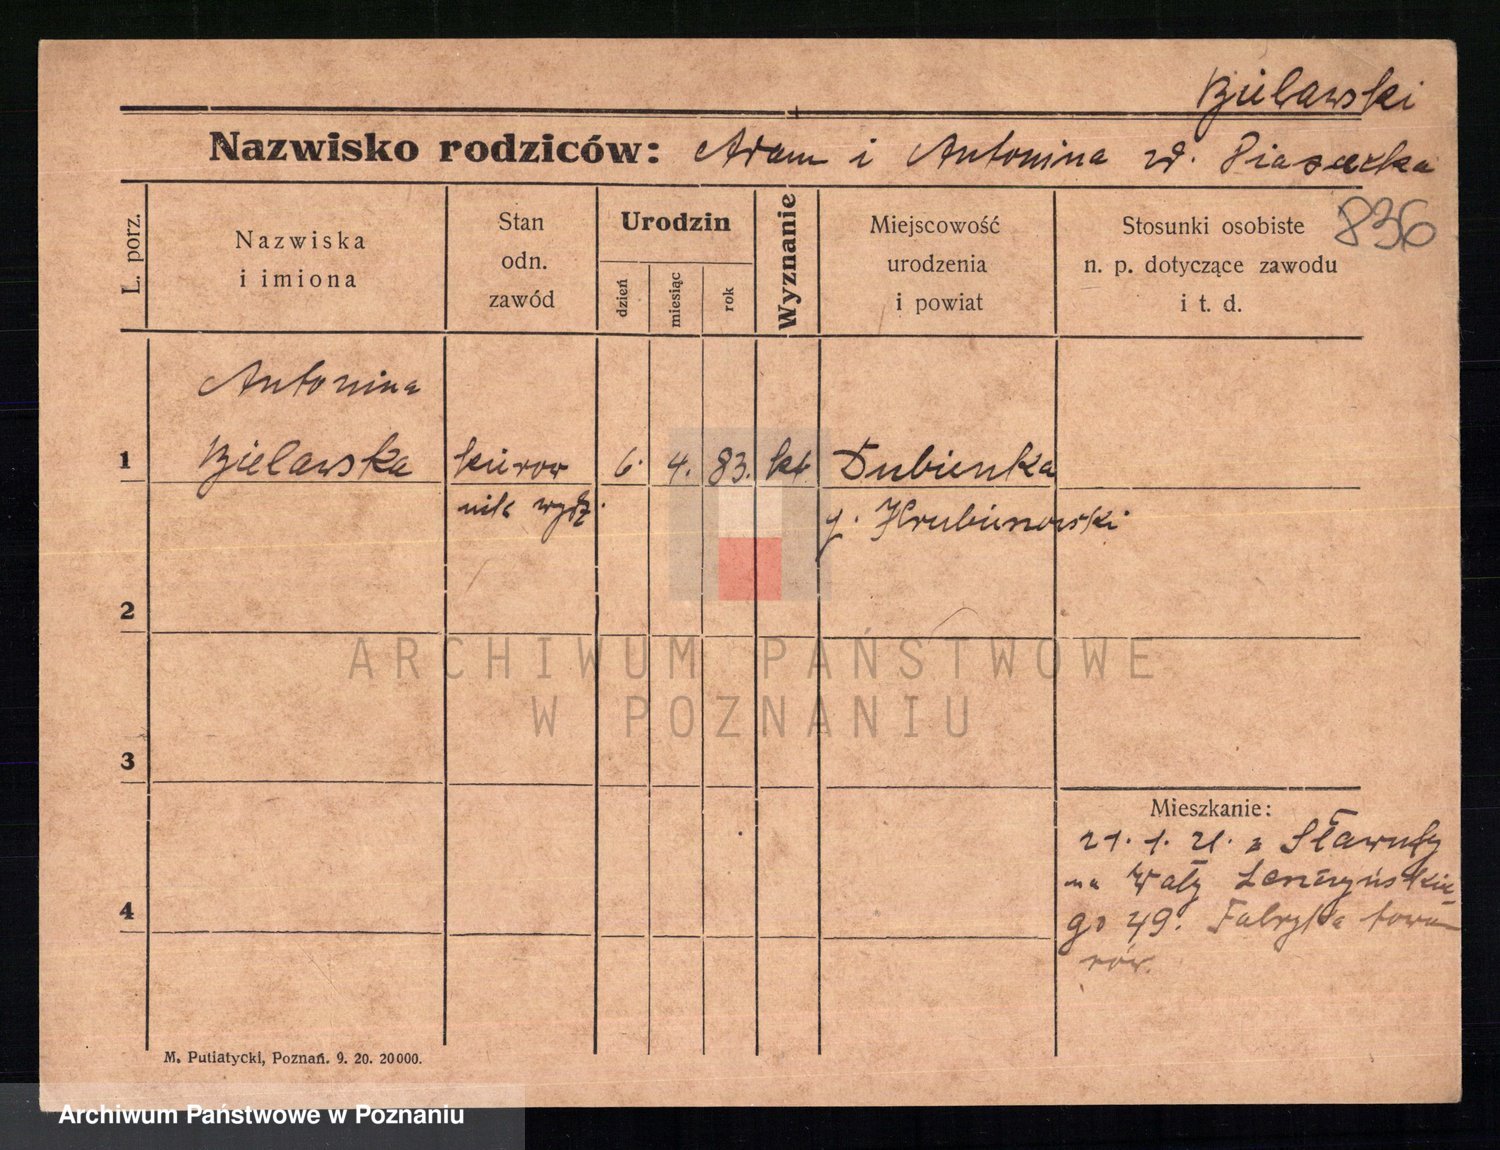 Bielawski
Nazwisko rodziców: Adam i Antonina zd. Piasecka
836
L. porz.
Nazwiska
i imiona
Stan
odn.
zawód
Urodzin
dzień
miesiąc
rok
Wyznanie
Miejscowość
urodzenia
i powiat
Stosunki osobiste
n. p. dotyczące zawodu
i t. d.
Antonina
1 Bielawska kierow 6. 4. 83. kt. Dubienka
nik wydz. g. Hrubieszowski
2
3
4
Mieszkanie:
21. 1. 21. z Sławuty
na Wały Leszczyńskie
go 49. Fabryka towa
rów.
M. Putiatycki, Poznań. 9. 20. 20000.
ARCHIWUM PAŃSTWOWE
W POZNANIU
Archiwum Państwowe w Poznaniu